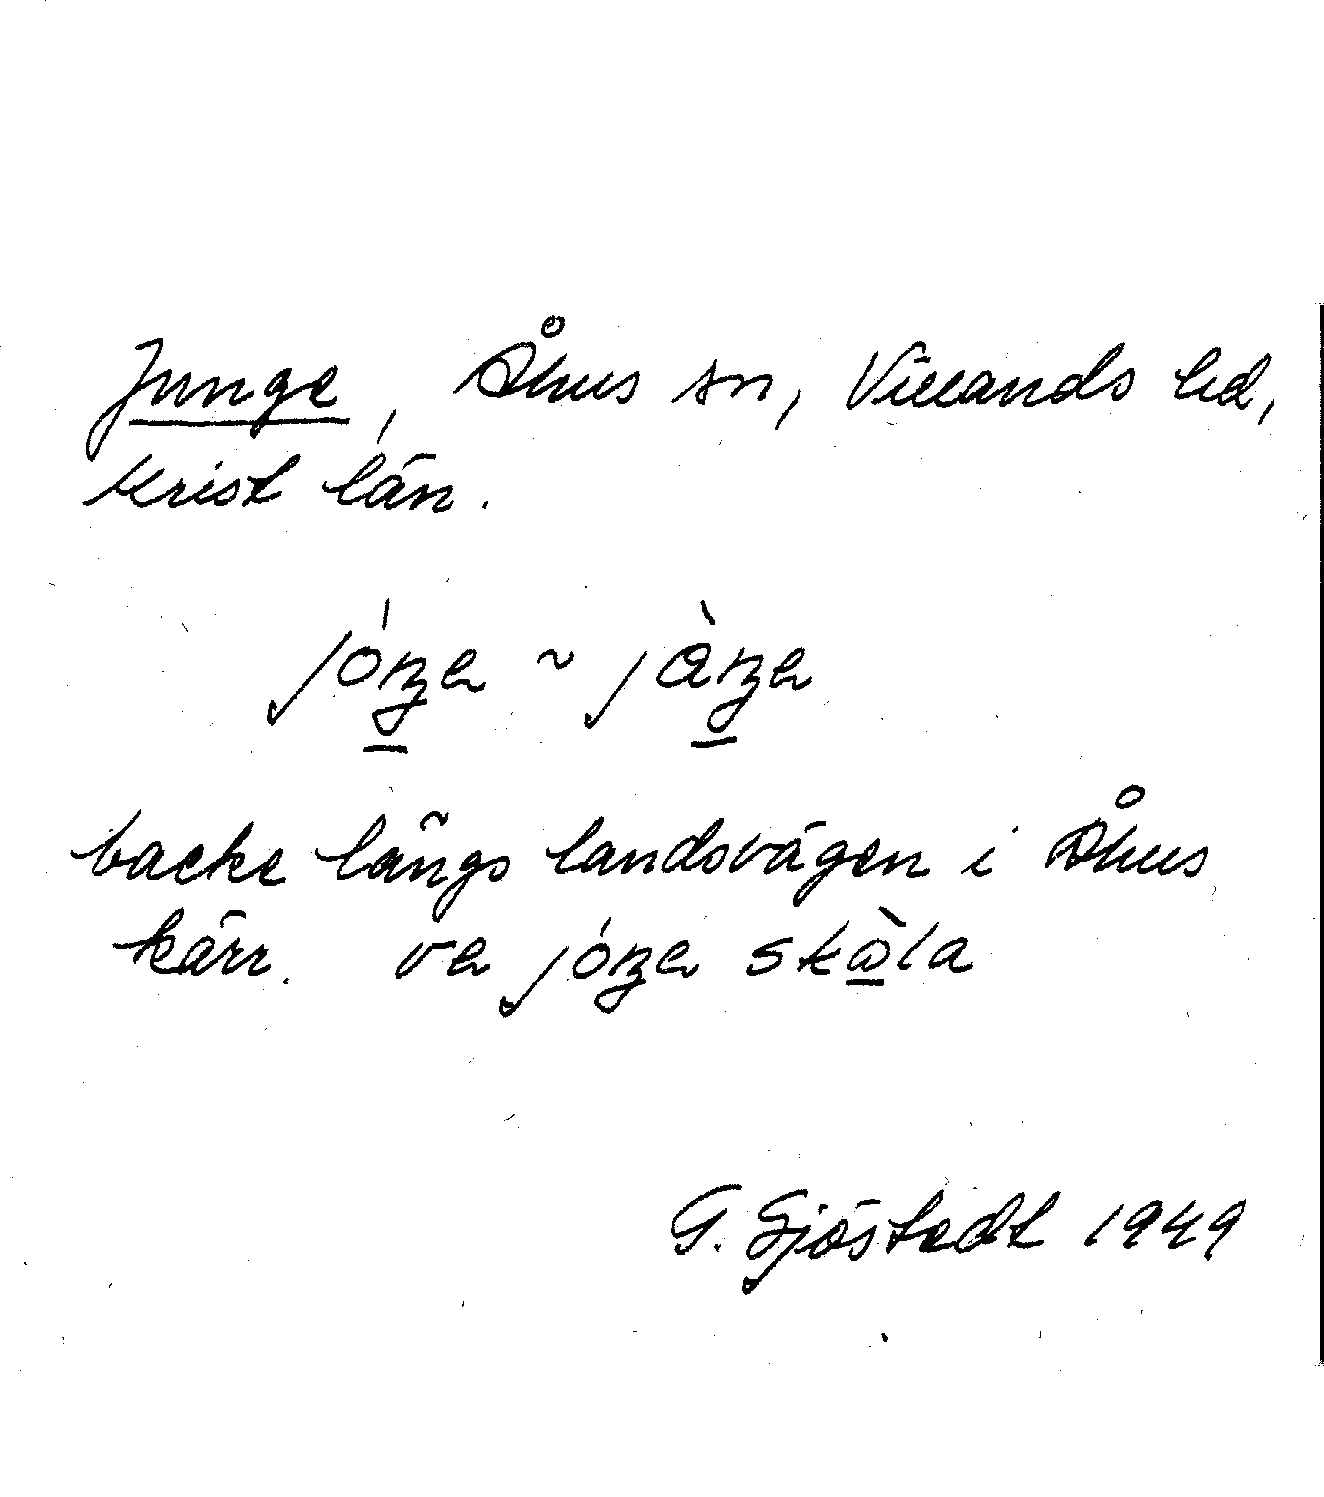 Junge, Åhus sn, Villands hd,
Krist län.
jóŋer ~ jàŋer
backe längs landsvägen i Åhus
kärr. ve jóŋer skàla
G. Sjöstedt 1949